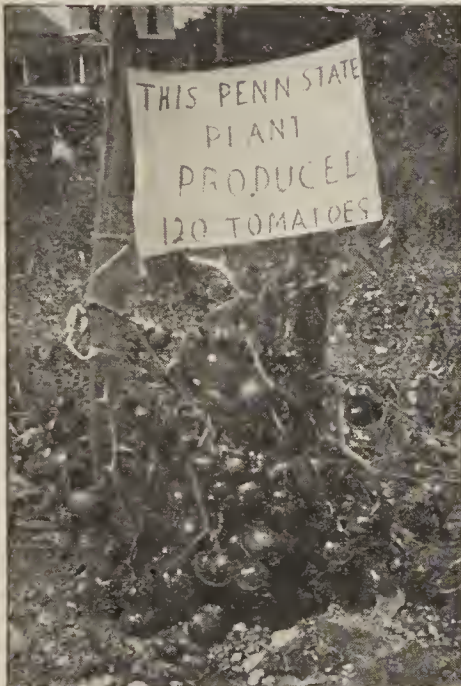 THIS PENN STATE
PLANT
PRODUCED
120 TOMATOES